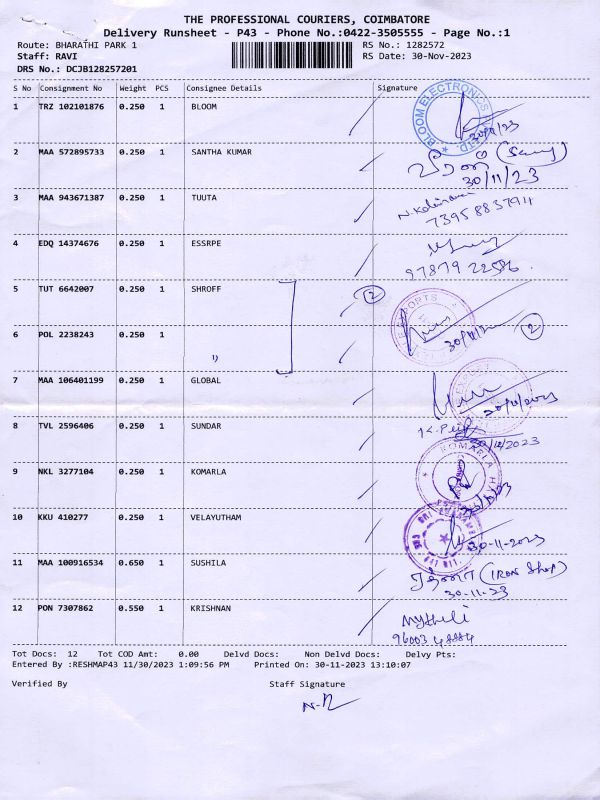 THE PROFESSIONAL COURIERS, COIMBATORE
Delivery Runsheet - P43 - Phone No.:0422-3505555 - Page No.:1
Route: BHARATHI PARK 1 RS No.: 1282572
Staff: RAVI RS Date: 30-Nov-2023
DRS No.: DCJB128257201
S No Consignment No Weight PCS Consignee Details Signature
1 TRZ 102101876 0.250 1 BLOOM
BLOOM ELECTRONICS
2 MAA 572895733 0.250 1 SANTHA KUMAR
30/11/23
3 MAA 943671387 0.250 1 TUUTA
7395883794
4 EDQ 14374676 0.250 1 ESSRPE
97879 22586
5 TUT 6642007 0.250 1 SHROFF 2
6 POL 2238243 0.250 1 " 2
7 MAA 106401199 0.250 1 GLOBAL
8 TVL 2596406 0.250 1 SUNDAR
9 NKL 3277104 0.250 1 KOMARLA
KOMARLA
10 KKU 410277 0.250 1 VELAYUTHAM
30-11-2023
11 MAA 100916534 0.650 1 SUSHILA
(IRON Shop)
30-11-23
12 PON 7307862 0.550 1 KRISHNAN
Mythili
96003 4
Tot Docs: 12 Tot COD Amt: 0.00 Delvd Docs: Non Delvd Docs: Delvy Pts:
Entered By :RESHMAP43 11/30/2023 1:09:56 PM Printed On: 30-11-2023 13:10:07
Verified By Staff Signature